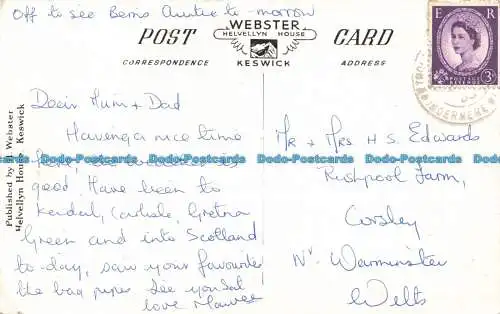 Off to see Berns Auntie to-morrow
POST CARD
WEBSTER
HELVELLYN HOUSE
KESWICK
CORRESPONDENCE
ADDRESS
E R
POSTAGE REVENUE
3D
Dear Mum + Dad
Having a nice time
here, the weather is
good. Have been to
Kendal, Carlisle, Gretna
Green and into Scotland
to-day, saw your favourites
the bag pipes see you Sat
love Mauree
Mr + Mrs H S Edwards
Rushpool Farm,
Corsley
Nr Warminster
Wilts
Published by H. Webster
Helvellyn House, Keswick
Dodo-Postcards Dodo-Postcards Dodo-Postcards Dodo-Postcards
Dodo-Postcards Dodo-Postcards Dodo-Postcards Dodo-Postcards